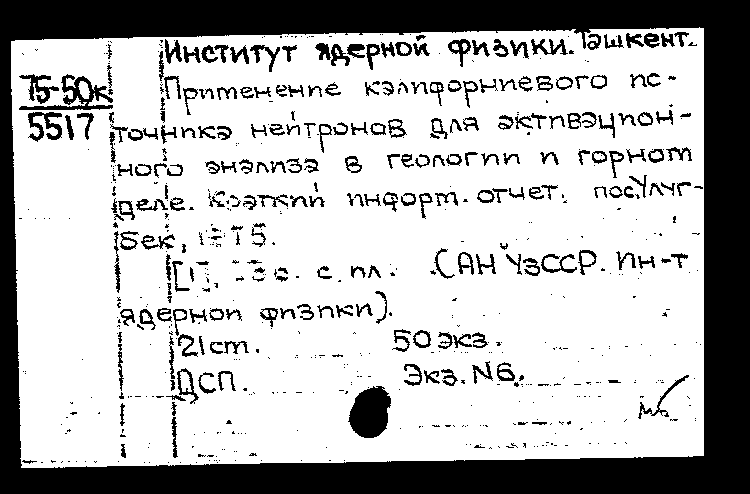 Институт ядерной физики. Ташкент.
75-50к
5517
Применение калифорниевого ис-
точника нейтронов для активацион-
ного анализа в геологии и горном
деле. Краткий информ. отчет. пос. Улуг-
бек, 1975.
с. с ил. (АН УзССР. Ин-т
ядерной физики).
21 cm. 50 экз.
ДСП. Экз. N6.